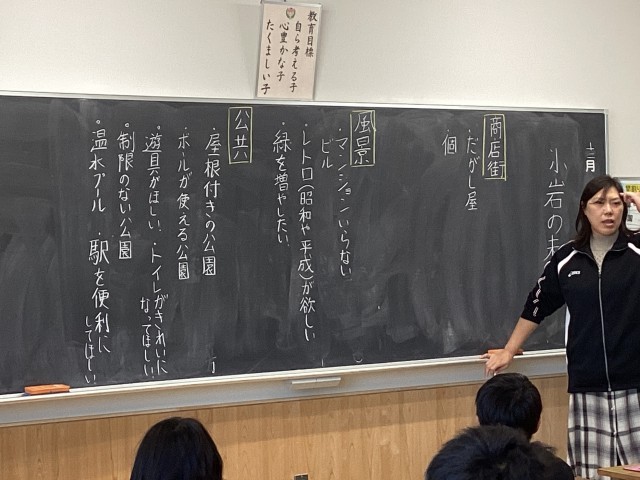 教育目標
自ら考える子
心豊かな子
たくましい子
十二月
小岩の未
商店街
・だがし屋
個
風景
・マンションいらない
ビル
・レトロ(昭和や平成)が欲しい
・緑を増やしたい
公共
・屋根付きの公園
・ボールが使える公園
・遊具がほしい ・トイレがきれいになってほしい
・制限のない公園
・温水プール ・駅を便利にしてほしい